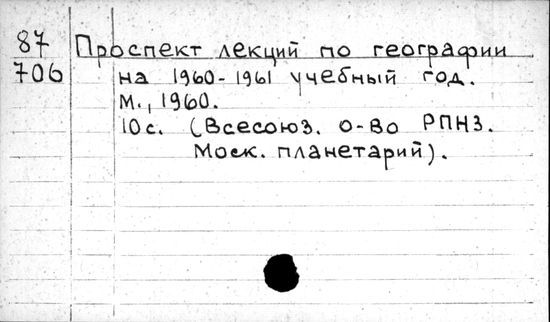 87
706
Проспект лекций по географии
на 1960-1961 учебный год.
М., 1960.
10 с. (Всесоюз. о-во РПНЗ.
Моск. планетарий).